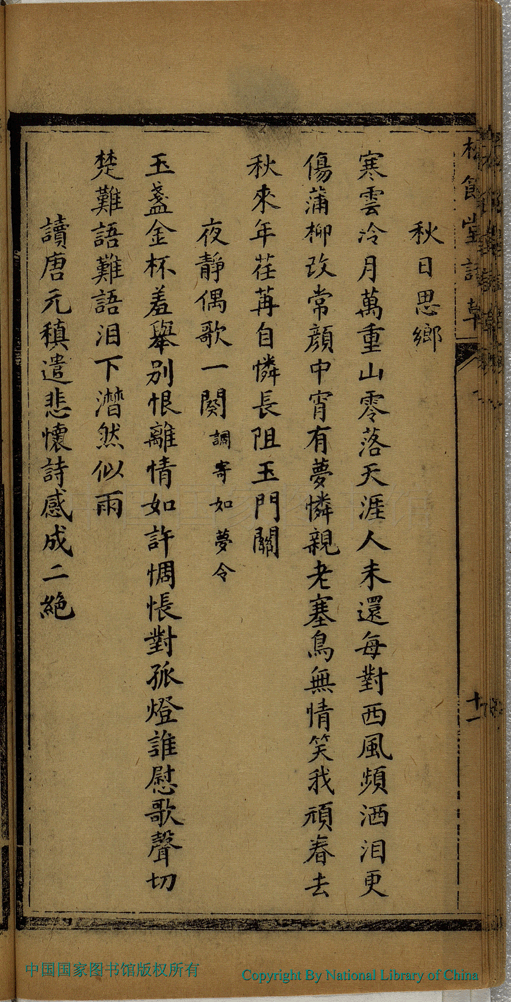 秋日思鄉
寒雲冷月萬重山零落天涯人未還每對西風頻洒泪更
傷蒲柳改常顔中宵有夢憐親老塞鳥無情笑我頑春去
秋來年荏苒自憐長阻玉門關
夜靜偶歌一闋調寄如夢令
玉盞金杯羞舉别恨離情如許惆悵對孤燈誰慰歌聲切
楚難語難語泪下潸然似雨
讀唐元稹遣悲懷詩感成二絶
十一
中国国家图书馆版权所有
Copyright By National Library of China